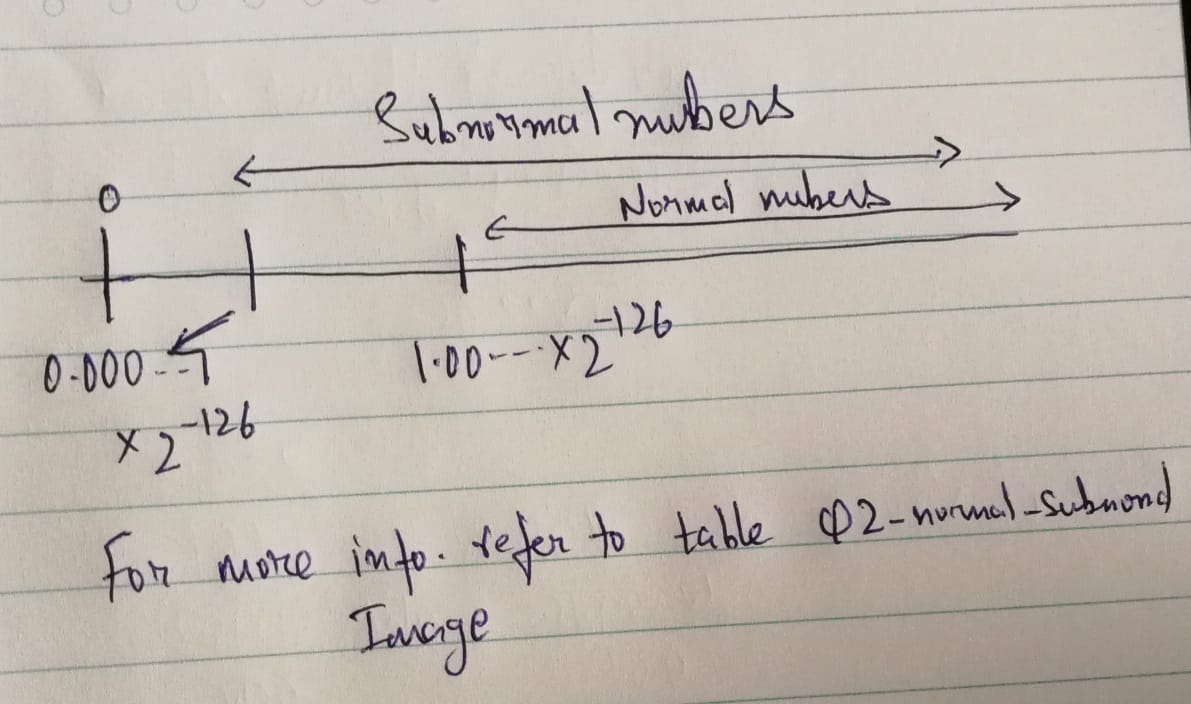 Subnormal nubers
0
Normal nubers
0.000---1
x 2^-126
1.00---- x 2^-126
For more info. refer to table 02-normal-subnond
Image